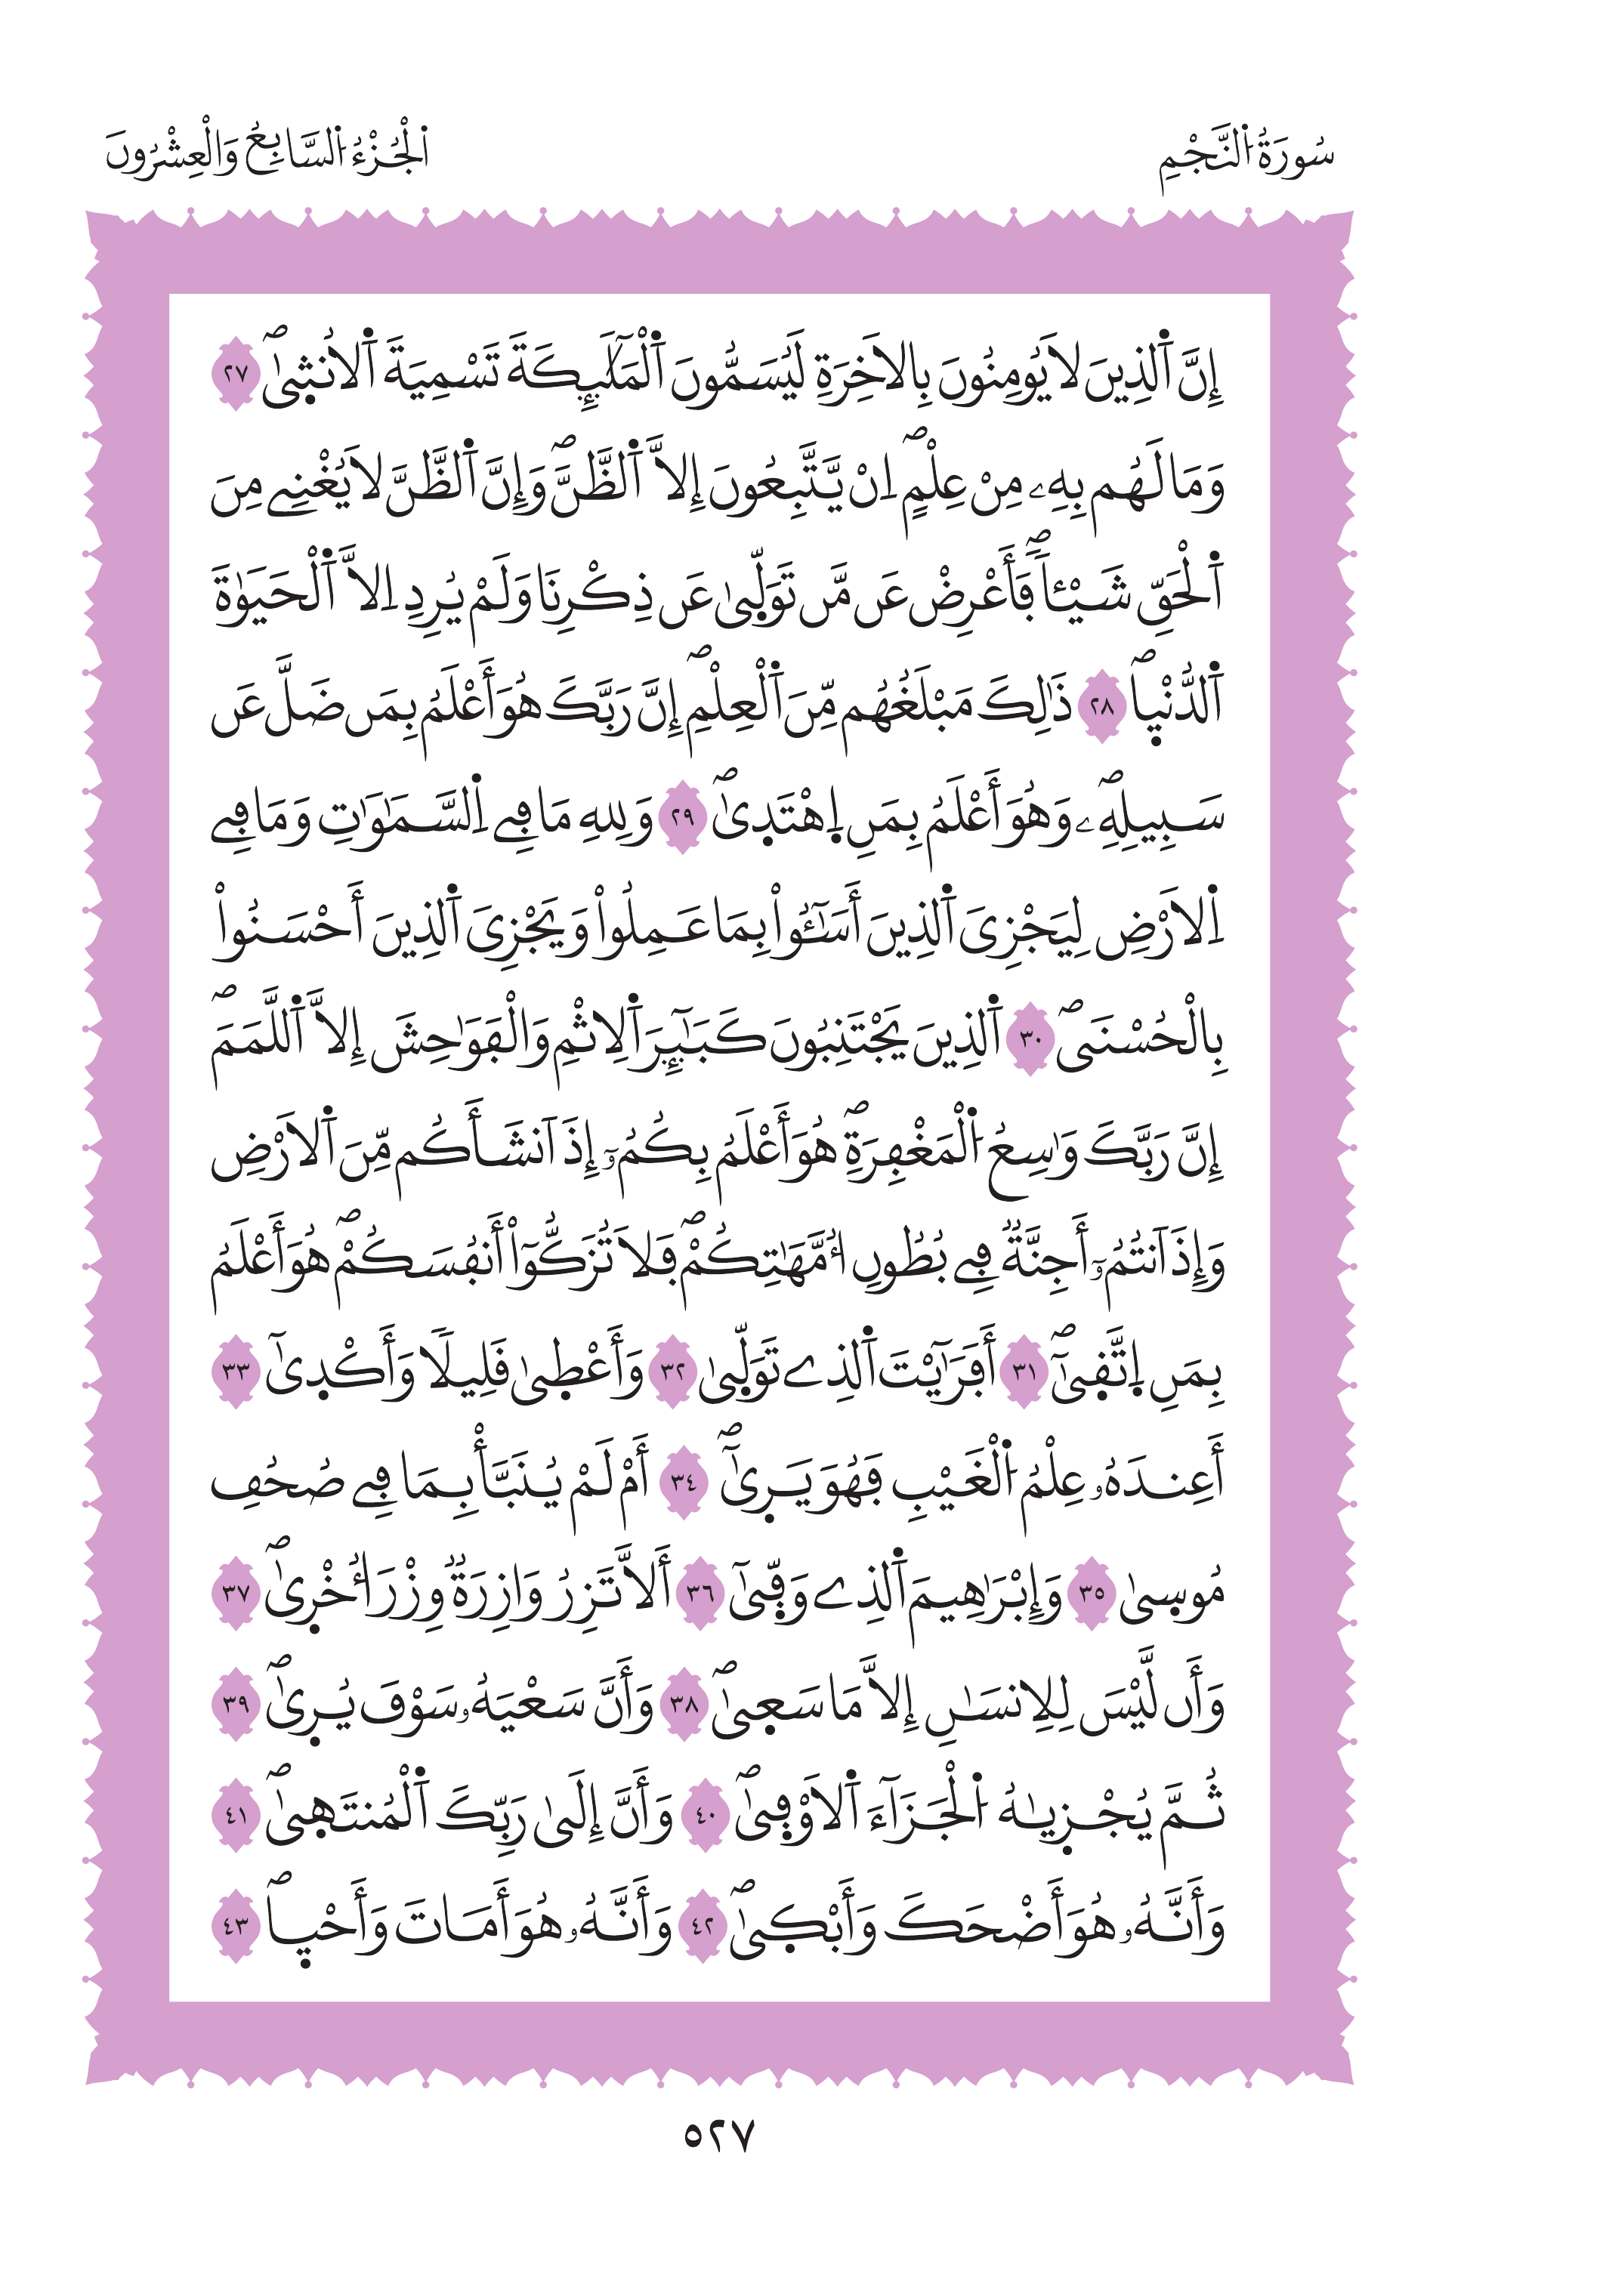 سُورَةُ اُ۬لنَّجْمِ
اُ۬لْجُزْءُ اُ۬لسَّابِعُ وَالْعِشْرُونَ
إِنَّ اَ۬لذِينَ لَا يُومِنُونَ بِالَاخِرَةِ لَيُسَمُّونَ اَ۬لْمَلَٰٓئِكَةَ تَسْمِيَةَ اَ۬لُانث۪ىٰۖ ٢٧
وَمَا لَهُم بِهِۦ مِنْ عِلْمٍۖ اِنْ يَّتَّبِعُونَ إِلَّا اَ۬لظَّنَّۖ وَإِنَّ اَ۬لظَّنَّ لَا يُغْنِے مِنَ
اَ۬لْحَقِّ شَيْـٔاٗۖ فَأَعْرِضْ عَن مَّن تَوَلّ۪ىٰ عَن ذِكْرِنَا وَلَمْ يُرِدِ اِلَّا اَ۬لْحَيَوٰةَ
اَ۬لدُّنْي۪اۖ ٢٨ ذَٰلِكَ مَبْلَغُهُم مِّنَ اَ۬لْعِلْمِۖ إِنَّ رَبَّكَ هُوَ أَعْلَمُ بِمَن ضَلَّ عَن
سَبِيلِهِۦۖ وَهُوَ أَعْلَمُ بِمَنِ اِ۪هْتَد۪ىٰۖ ٢٩ وَلِلهِ مَا فِے اِ۬لسَّمَٰوَٰتِ وَمَا فِے
اِ۬لَارْضِ لِيَجْزِيَ اَ۬لذِينَ أَسَٰٓـُٔواْ بِمَا عَمِلُواْ وَيَجْزِيَ اَ۬لذِينَ أَحْسَنُواْ
بِالْحُسْنَىۖ ٣٠ اَ۬لذِينَ يَجْتَنِبُونَ كَبَٰٓئِرَ اَ۬لِاثْمِ وَالْفَوَٰحِشَ إِلَّا اَ۬للَّمَمَۖ
إِنَّ رَبَّكَ وَٰسِعُ اُ۬لْمَغْفِرَةِۖ هُوَ أَعْلَمُ بِكُمُۥٓ إِذَ اَنشَأَكُم مِّنَ اَ۬لَارْضِ
وَإِذَ اَنتُمُۥٓ أَجِنَّةٞ فِے بُطُونِ أُمَّهَٰتِكُمْۖ فَلَا تُزَكُّوٓاْ أَنفُسَكُمْۖ هُوَ أَعْلَمُ
بِمَنِ اِ۪تَّق۪ىٰٓۖ ٣١ أَفَرَٰٓيْتَ اَ۬لذِے تَوَلّ۪ىٰ ٣٢ وَأَعْط۪ىٰ قَلِيلاٗ وَأَكْد۪ىٰٓ ٣٣
أَعِندَهُۥ عِلْمُ اُ۬لْغَيْبِ فَهُوَ يَر۪ىٰٓۖ ٣٤ أَمْ لَمْ يُنَبَّأْ بِمَا فِے صُحُفِ
مُوس۪ىٰ ٣٥ وَإِبْرَٰهِيمَ اَ۬لذِے وَفّ۪ىٰٓ ٣٦ أَلَّا تَزِرُ وَازِرَةٞ وِزْرَ أُخْر۪ىٰۖ ٣٧
وَأَن لَّيْسَ لِلِانسَٰنِ إِلَّا مَا سَع۪ىٰۖ ٣٨ وَأَنَّ سَعْيَهُۥ سَوْفَ يُر۪ىٰۖ ٣٩
ثُمَّ يُجْز۪يٰهُ اُ۬لْجَزَآءَ اَ۬لَاوْف۪ىٰۖ ٤٠ وَأَنَّ إِلَىٰ رَبِّكَ اَ۬لْمُنتَه۪ىٰۖ ٤١
وَأَنَّهُۥ هُوَ أَضْحَكَ وَأَبْك۪ىٰۖ ٤٢ وَأَنَّهُۥ هُوَ أَمَاتَ وَأَحْي۪اۖ ٤٣
٥٢٧